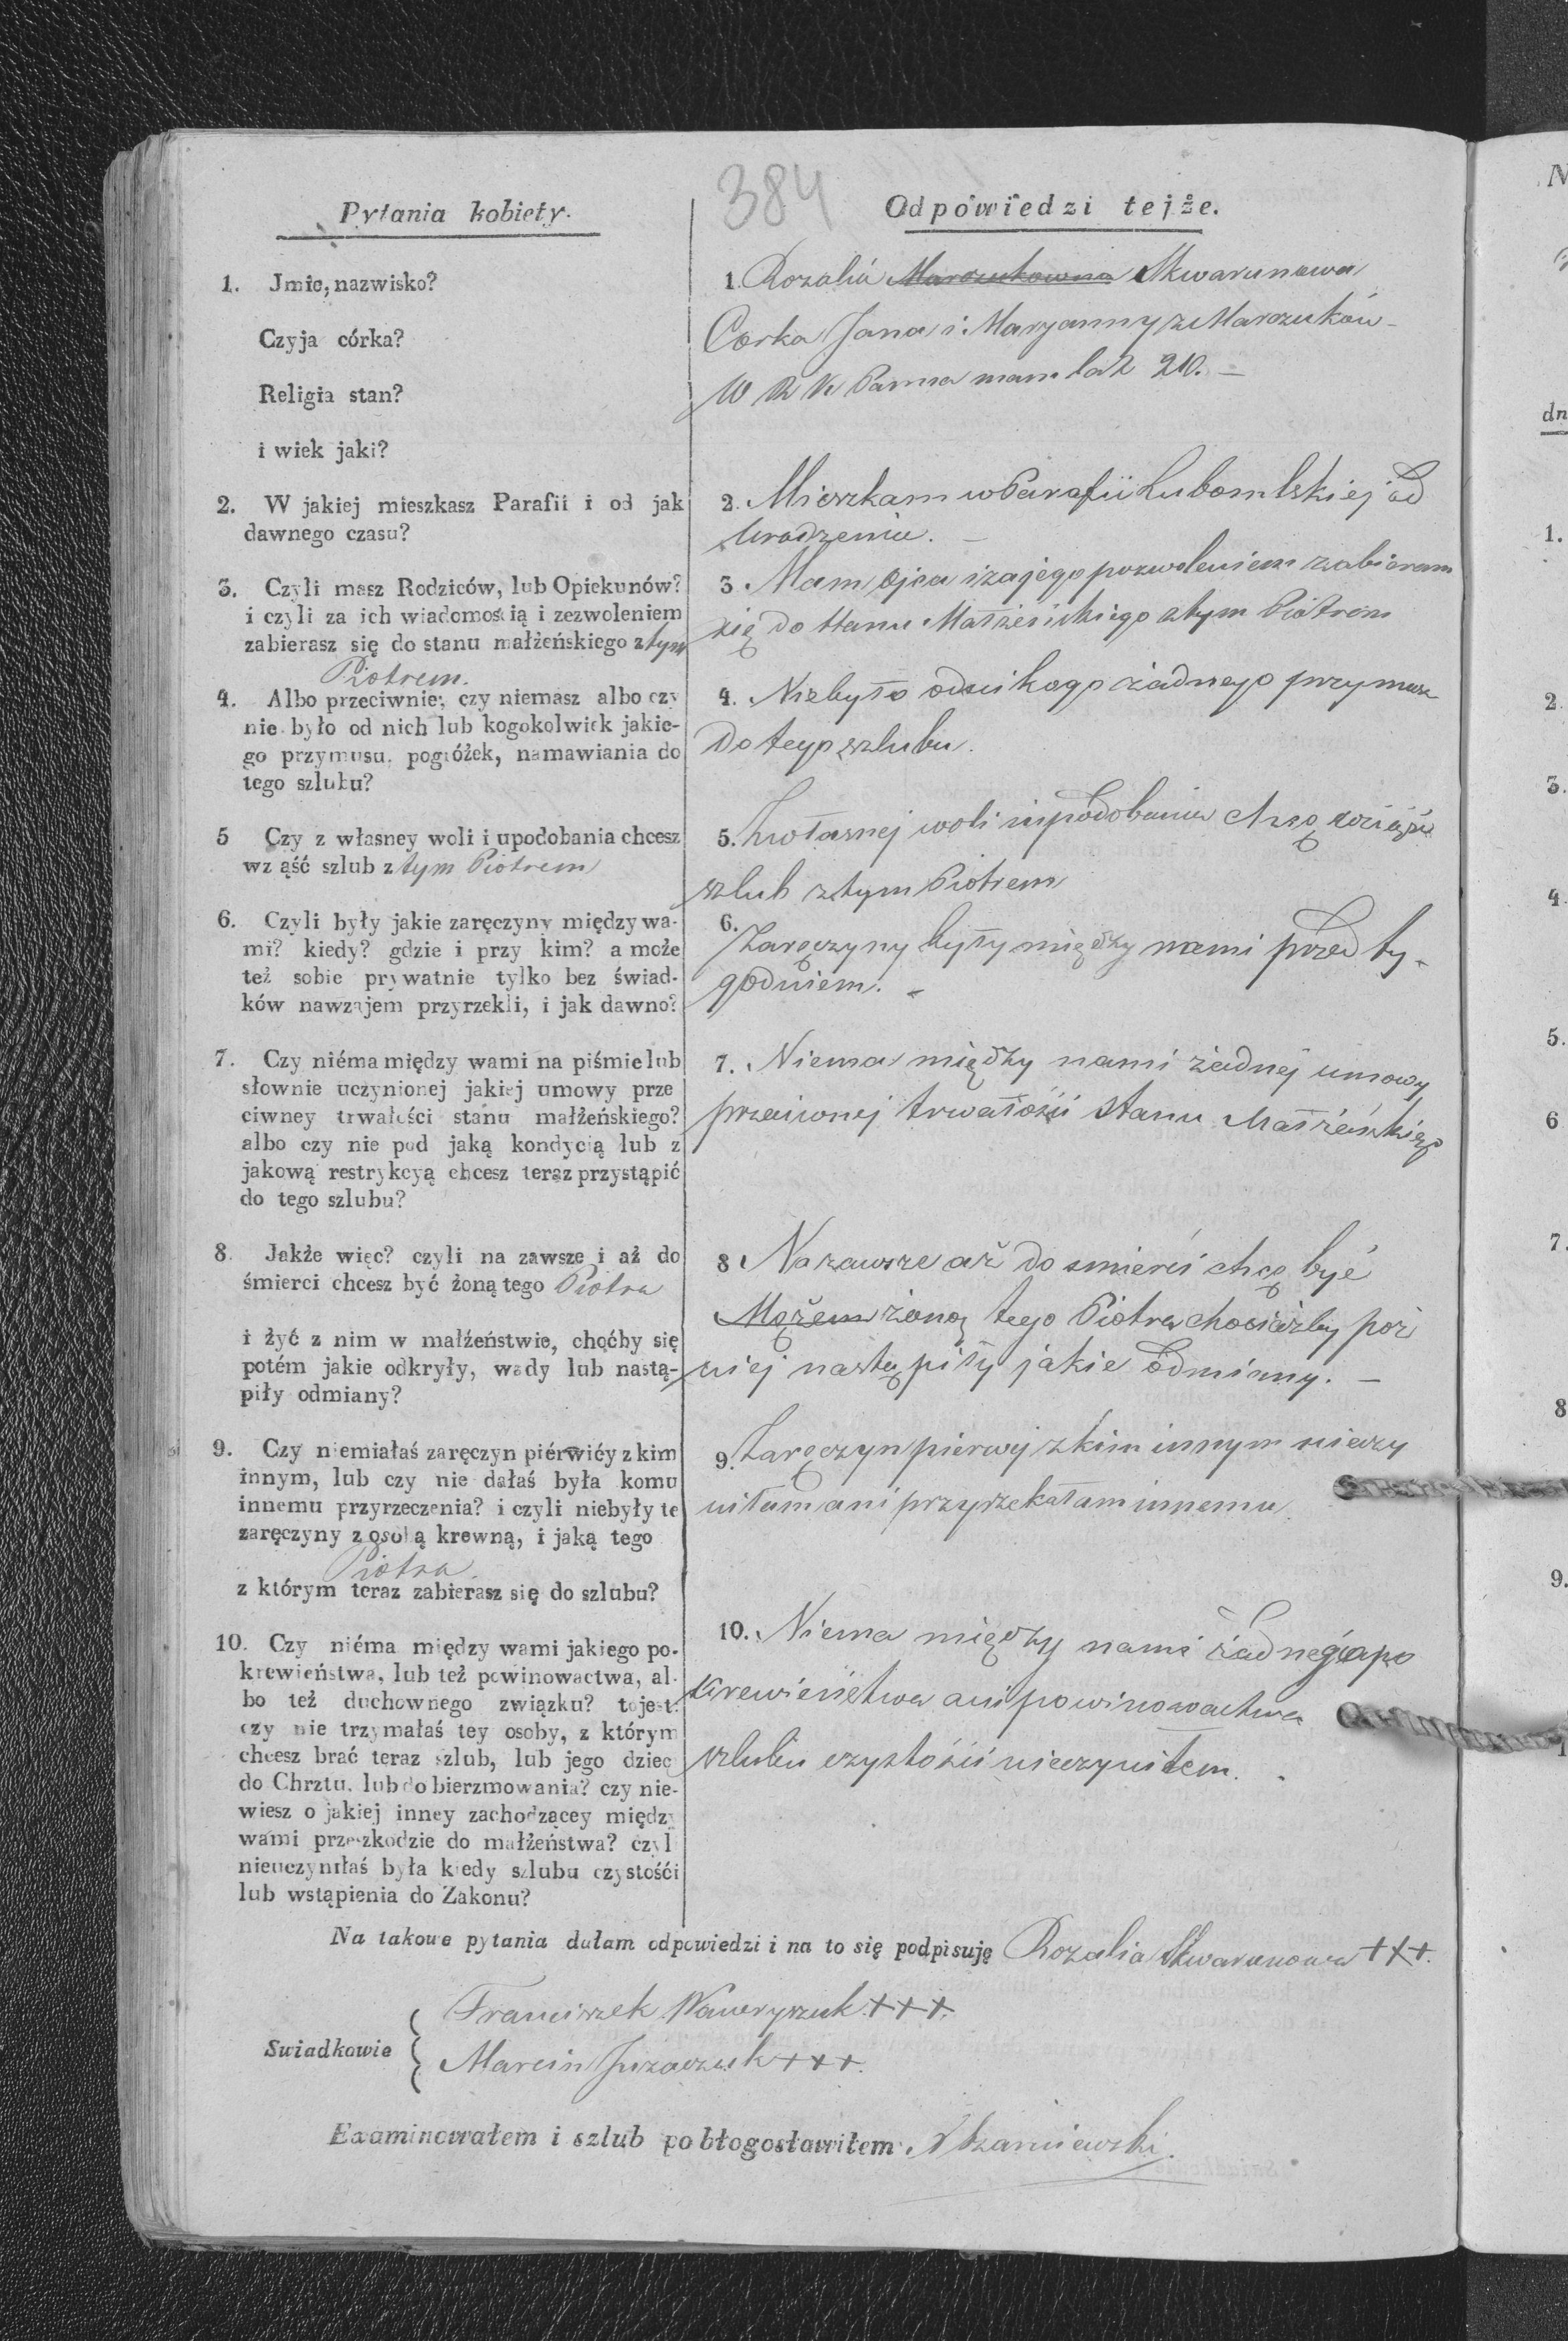 384
Pytania kobiety.
Odpowiedzi tejże.
1. Jmie, nazwisko?
Czyja córka?
Religia stan?
i wiek jaki?
1. Rozalia Marczukowna Skwarunowa
Corka Jana i Maryanny z Marczuków
W R K Panna mam lat 20. –
2. W jakiej mieszkasz Parafii i od jak
dawnego czasu?
2. Mieszkam w Parafii Lubomlskiej od
Urodzenia. –
3. Czyli masz Rodziców, lub Opiekunów?
i czyli za ich wiadomością i zezwoleniem
zabierasz się do stanu małżeńskiego z tym
Piotrem.
3. Mam Ojca i za jego pozwoleniem zabieram
się do stanu Małżeńskiego z tym Piotrem
4. Albo przeciwnie; czy niemasz albo czy
nie było od nich lub kogokolwiek jakie-
go przymusu, pogróżek, namawiania do
tego szlubu?
4. Niebyło od nikogo żadnego przymusu
do tego szlubu.
5 Czy z własney woli i upodobania chcesz
wz ąść szlub z tym Piotrem
5. Z własnej woli i upodobania chcę wziąść
szlub z tym Piotrem
6. Czyli były jakie zaręczyny między wa-
mi? kiedy? gdzie i przy kim? a może
też sobie prywatnie tylko bez świad-
ków nawzajem przyrzekli, i jak dawno?
6. Zaręczyny były między nami przed ty-
godniem. –
7. Czy niéma między wami na piśmie lub
słownie uczynionej jakiej umowy prze
ciwney trwałości stanu małżeńskiego?
albo czy nie pod jaką kondycią lub z
jakową restrykcyą chcesz teraz przystąpić
do tego szlubu?
7. Niema między nami żadnej umowy
przeciwnej trwałości stanu Małżeńskiego
8. Jakże więc? czyli na zawsze i aż do
śmierci chcesz być żoną tego Piotra
i żyć z nim w małżeństwie, choćby się
potém jakie odkryły, wady lub nastą-
piły odmiany?
8 Na zawsze aż do smierci chcę być
Mężem żoną tego Piotra chociażby poź
niej nastąpiły jakie odmiany. –
9. Czy niemiałaś zaręczyn piérwiéy z kim
innym, lub czy nie dałaś była komu
innemu przyrzeczenia? i czyli niebyły te
zaręczyny z osobą krewną, i jaką tego
Piotra
z którym teraz zabierasz się do szlubu?
9. Zaręczyn pierwej z kim innym nieczy
niłam ani przyrzekałam innemu.
10. Czy niéma między wami jakiego po-
krewieństwa, lub też powinowactwa, al-
bo też duchownego związku? tojest:
czy nie trzymałaś tey osoby, z którym
chcesz brać teraz szlub, lub jego dziec
do Chrztu, lub do bierzmowania? czy nie-
wiesz o jakiej inney zachodzącey między
wami przeszkodzie do małżeństwa? czyl
nieuczyniłaś była kiedy szlubu czystośći
lub wstąpienia do Zakonu?
10. Niema między nami żadnego po
krewieństwa ani powinowactwa
szlubu czystości nieczyniłem.
Na takowe pytania dałam odpowiedzi i na to się podpisuję Rozalia Skwarunowa +++.
Swiadkowie
Franciszek Wawryszuk +++.
Marcin +++.
Examinowałem i szlub pobłogosławiłem